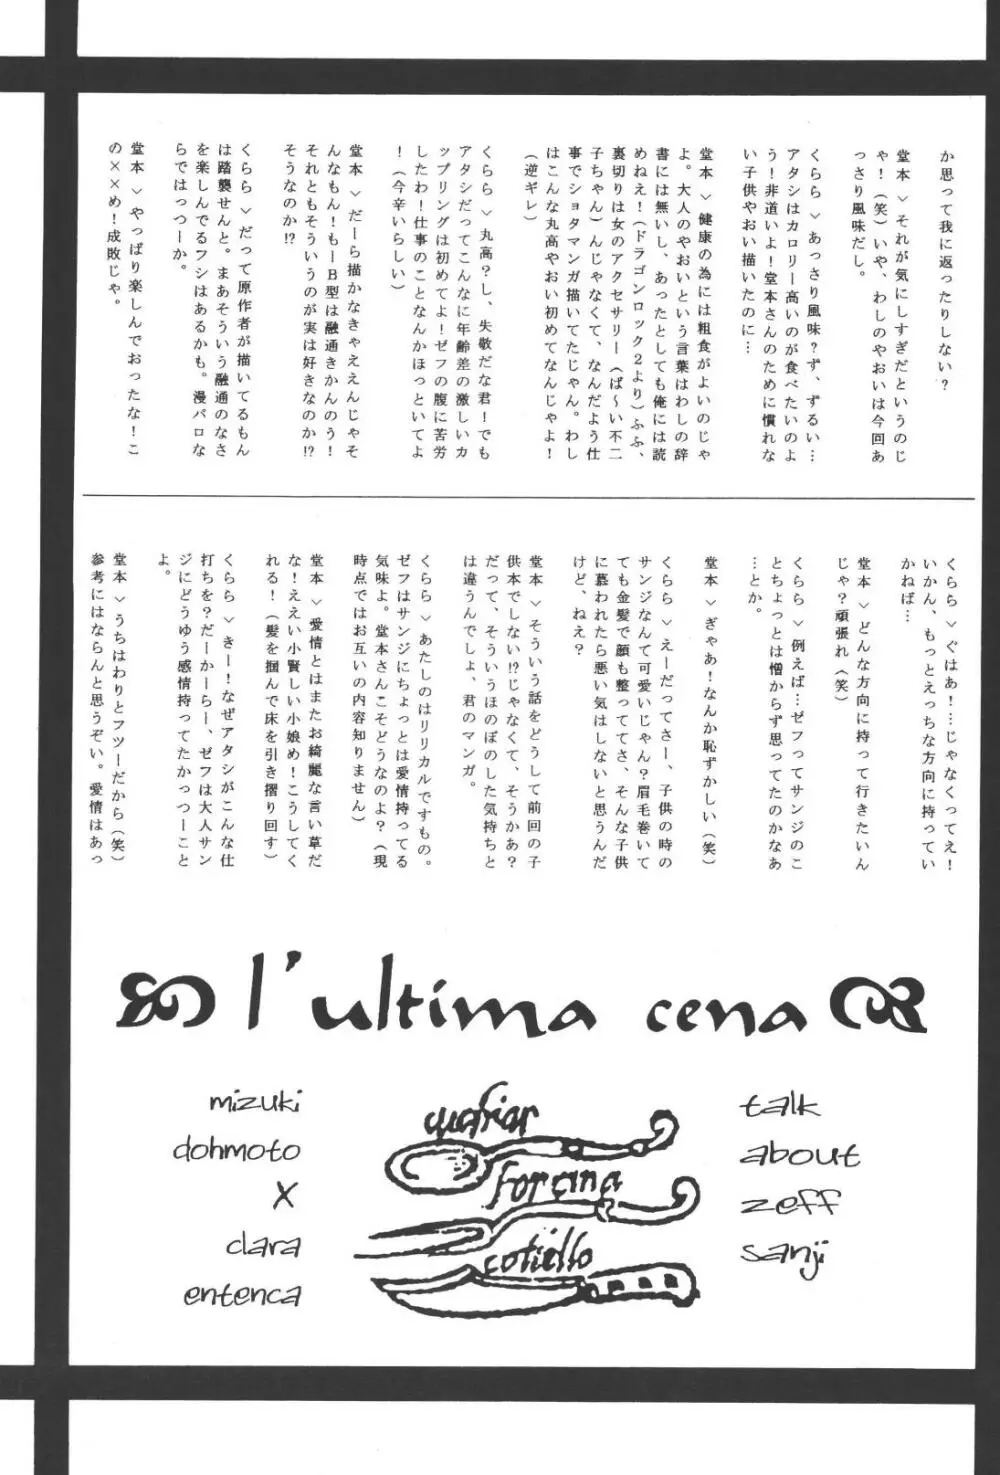 か思って我に返ったりしない？
堂本 ＞ それが気にしすぎだというのじ
ゃ！（笑）いや、わしのやおいは今回あ
っさり風味だし。
くらら ＞ あっさり風味？ず、ずるい…
アタシはカロリー高いのが食べたいのよ
う！非道いよ！堂本さんのために慣れな
い子供やおい描いたのに…
堂本 ＞ 健康の為には粗食がよいのじゃ
よ。大人のやおいという言葉はわしの辞
書には無いし、あったとしても俺には読
めねえ！（ドラゴンロック２より）ふふ、
裏切りは女のアクセサリー（ば〜い不二
子ちゃん）んじゃなくて、なんだよう仕
事でショタマンガ描いてたじゃん。わし
はこんな丸高やおい初めてなんじゃよ！
（逆ギレ）
くらら ＞ 丸高？し、失敬だな君！でも
アタシだってこんなに年齢差の激しいカ
ップリングは初めてよ！ゼフの腹に苦労
したわ！仕事のことなんかほっといてよ
！（今辛いらしい）
堂本 ＞ だーら描かなきゃええんじゃそ
んなもん！もーＢ型は融通きかんのう！
それともそういうのが実は好きなのか!?
そうなのか!?
くらら ＞ だって原作者が描いてるもん
は踏襲せんと。まあそういう融通のなさ
を楽しんでるフシはあるかも。漫パロな
らではっつーか。
堂本 ＞ やっぱり楽しんでおったな！こ
の××め！成敗じゃ。
くらら ＞ ぐはあ！…じゃなくってえ！
いかん、もっとえっちな方向に持ってい
かねば…
堂本 ＞ どんな方向に持って行きたいん
じゃ？頑張れ（笑）
くらら ＞ 例えば…ゼフってサンジのこ
とちょっとは憎からず思ってたのかなあ
…とか。
堂本 ＞ ぎゃあ！なんか恥ずかしい（笑）
くらら ＞ えーだってさー、子供の時の
サンジなんて可愛いじゃん？眉毛巻いて
ても金髪で顔も整っててさ、そんな子供
に慕われたら悪い気はしないと思うんだ
けど、ねえ？
堂本 ＞ そういう話をどうして前回の子
供本でしない!?じゃなくて、そうかあ？
だって、そういうほのぼのした気持ちと
は違うんでしょ、君のマンガ。
くらら ＞ あたしのはリリカルですもの。
ゼフはサンジにちょっとは愛情持ってる
気味よ。堂本さんこそどうなのよ？（現
時点ではお互いの内容知りません）
堂本 ＞ 愛情とはまたお綺麗な言い草だ
な！ええい小賢しい小娘め！こうしてく
れる！（髪を掴んで床を引き摺り回す）
くらら ＞ きー！なぜアタシがこんな仕
打ちを？だーかーらー、ゼフは大人サン
ジにどうゆう感情持ってたかっつーこと
よ。
堂本 ＞ うちはわりとフツーだから（笑）
参考にはならんと思うぞい。愛情はあっ
l'ultima cena
mizuki
dohmoto
X
clara
entenca
forcina
cotiello
talk
about
zeff
sanji